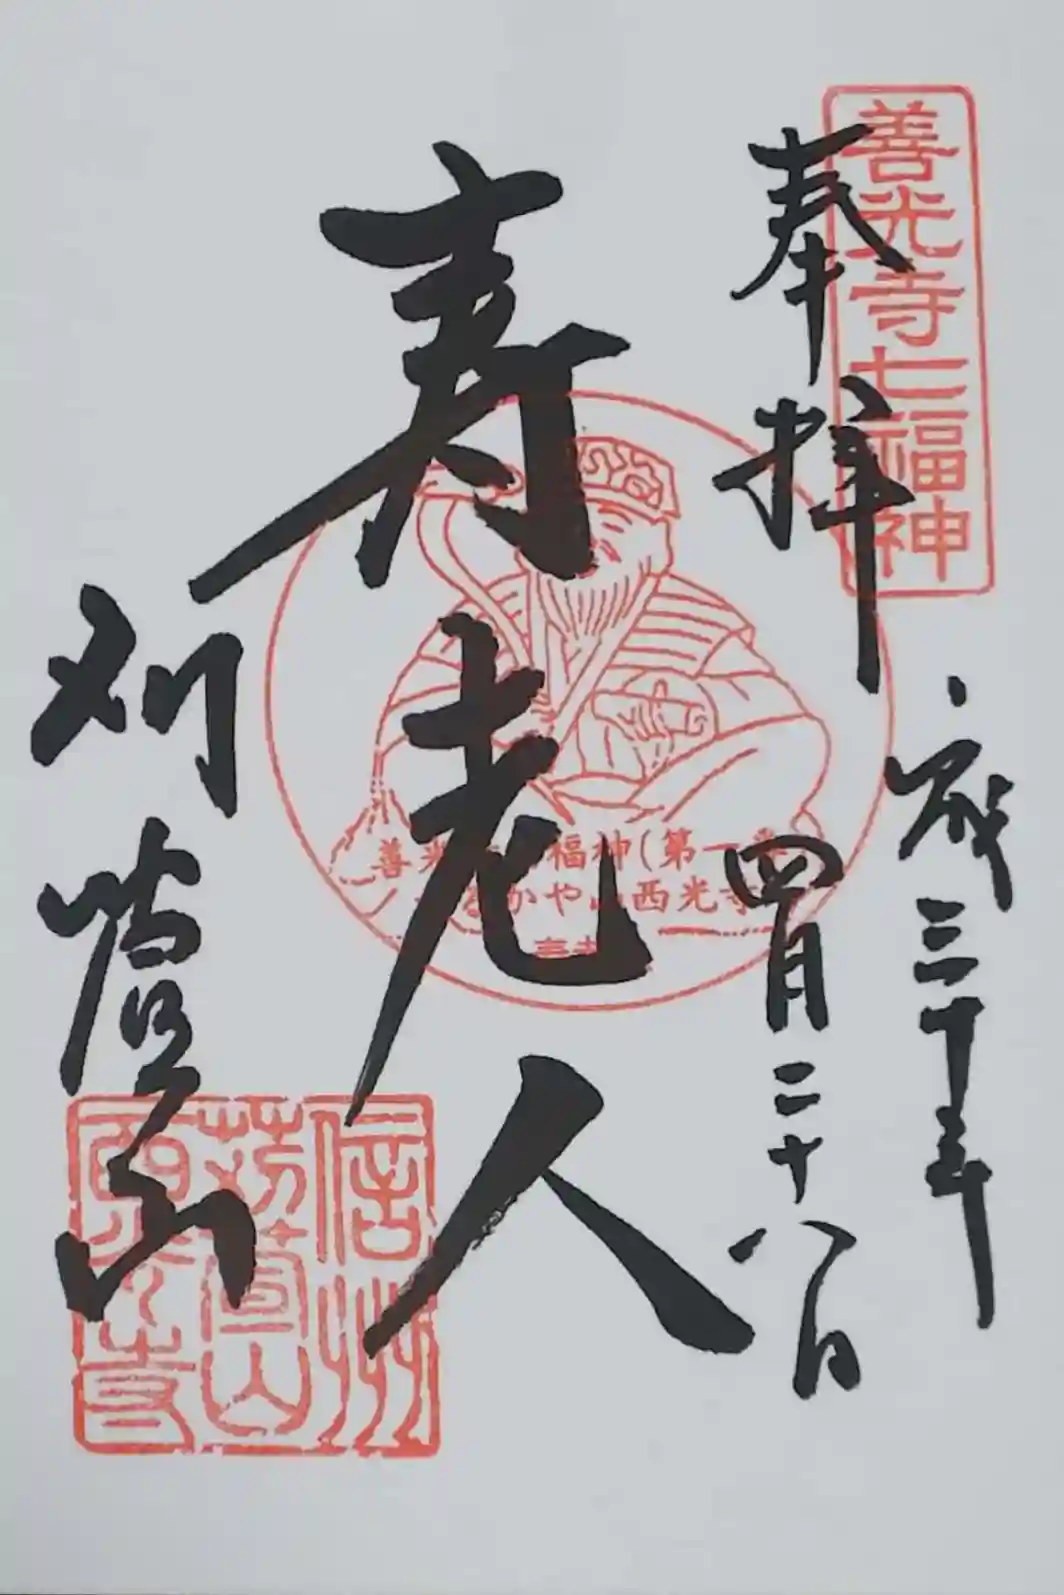 善光寺七福神
奉拝
平成三十年
四月二十八日
寿老人
福神(第一番)
かや山西光寺
刈萱山
信州
苅萱山
西光寺